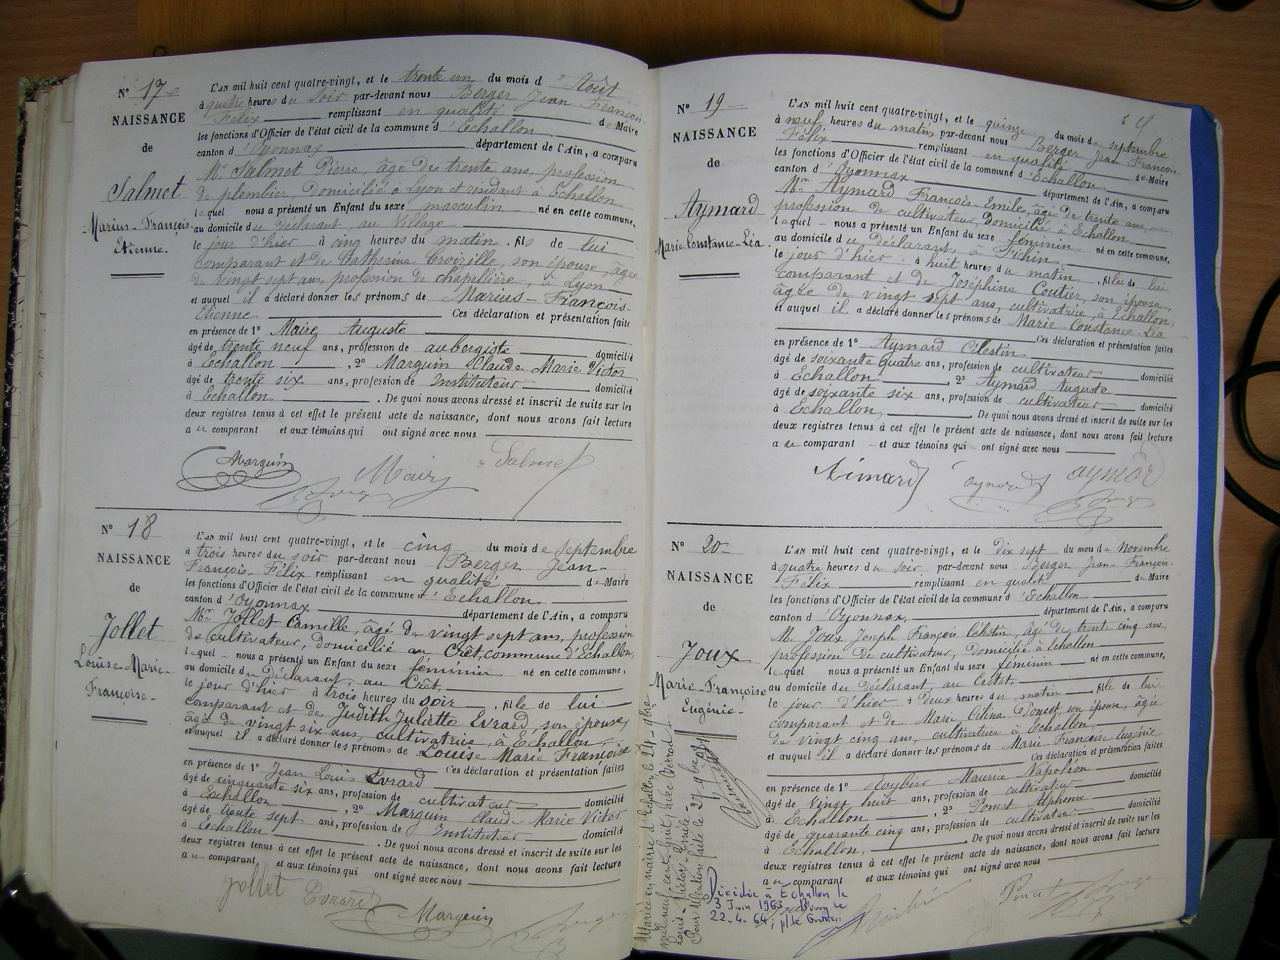 N° 17
NAISSANCE
de
Salmet
Marius-François-
Etienne.
L'AN mil huit cent quatre-vingt, et le trente un du mois d'Août
à quatre heures du soir par-devant nous Berger Jean François
Félix remplissant en qualité de Maire
les fonctions d'Officier de l'état civil de la commune d'Echallon
canton d'Oyonnax département de l'Ain, a comparu
Mr Salmet Pierre, âgé de trente ans, profession
de plombier domicilié à Lyon et résidant à Echallon
lequel nous a présenté un Enfant du sexe masculin né en cette commune,
au domicile du déclarant au Village
le jour d'hier à cinq heures du matin, fils de lui
comparant et de Catherine son épouse, âgée
de vingt sept ans, profession de chapelière, à Lyon
et auquel il a déclaré donner les prénoms de Marius-François-
Etienne Ces déclaration et présentation faites
en présence de 1° Maire Auguste
âgé de trente neuf ans, profession de aubergiste domicilié
à Echallon, 2° Marguin Claude Marie Victor
âgé de trente six ans, profession de Instituteur domicilié
à Echallon. De quoi nous avons dressé et inscrit de suite sur les
deux registres tenus à cet effet le présent acte de naissance, dont nous avons fait lecture
au comparant et aux témoins qui ont signé avec nous
Marguin Salmet
N° 18
NAISSANCE
de
Jollet
Louise-Marie-
Françoise-
L'AN mil huit cent quatre-vingt, et le cinq du mois de septembre
à trois heures du soir par-devant nous Berger Jean-
François-Félix remplissant en qualité de Maire
les fonctions d'Officier de l'état civil de la commune d'Echallon
canton d'Oyonnax département de l'Ain, a comparu
Mr Jollet Camille, âgé de vingt sept ans, profession
de cultivateur, domicilié au Crêt, commune d'Echallon,
lequel nous a présenté un Enfant du sexe féminin né en cette commune,
au domicile du déclarant, au Crêt,
le jour d'hier à trois heures du soir, fille de lui
comparant et de Judith Juliette Evrard, son épouse,
âgée de vingt six ans, cultivatrice, à Echallon,
et auquel il a déclaré donner les prénoms de Louise Marie Françoise
Ces déclaration et présentation faites
en présence de 1° Jean Louis Evrard
âgé de cinquante six ans, profession de cultivateur domicilié
à Echallon, 2° Marguin Claude Marie Victor
âgé de trente sept ans, profession de Instituteur domicilié
à Echallon. De quoi nous avons dressé et inscrit de suite sur les
deux registres tenus à cet effet le présent acte de naissance, dont nous avons fait lecture
au comparant, et aux témoins qui ont signé avec nous
Jollet Evrard Marguin
N° 19
NAISSANCE
de
Aymard
Marie-Constance-Léa.
L'AN mil huit cent quatre-vingt, et le quinze du mois de septembre
à neuf heures du matin par-devant nous Berger Jean François
Félix remplissant en qualité de Maire
les fonctions d'Officier de l'état civil de la commune d'Echallon
canton d'Oyonnax département de l'Ain, a comparu
Mr Aymard François-Emile, âgé de trente ans,
profession de cultivateur domicilié à Echallon
lequel nous a présenté un Enfant du sexe féminin né en cette commune,
au domicile du déclarant,
le jour d'hier à huit heures du matin, fille de lui
comparant et de Joséphine Coutier, son épouse,
âgée de vingt sept ans, cultivatrice, à Echallon
et auquel il a déclaré donner les prénoms de Marie Constance Léa
Ces déclaration et présentation faites
en présence de 1° Aymard Célestin
âgé de soixante quatre ans, profession de cultivateur domicilié
à Echallon, 2° Aymard Auguste
âgé de soixante six ans, profession de cultivateur domicilié
à Echallon. De quoi nous avons dressé et inscrit de suite sur les
deux registres tenus à cet effet le présent acte de naissance, dont nous avons fait lecture
au comparant et aux témoins qui ont signé avec nous
Aimard aymard aymard
N° 20
NAISSANCE
de
Joux
Marie-Françoise
Eugénie-
L'AN mil huit cent quatre-vingt, et le dix sept du mois de Novembre
à quatre heures du soir, par-devant nous Berger Jean-François-
Félix remplissant en qualité de Maire
les fonctions d'Officier de l'état civil de la commune d'Echallon
canton d'Oyonnax, département de l'Ain, a comparu
Mr Joux Joseph François Célestin, âgé de trente cinq ans,
profession de cultivateur, domicilié à Echallon
lequel nous a présenté un Enfant du sexe féminin né en cette commune,
au domicile du déclarant, au Crêt,
le jour d'hier à deux heures du matin, fille de lui
comparant et de Marie son épouse, âgée
de vingt cinq ans, cultivatrice à Echallon
et auquel il a déclaré donner les prénoms de Marie Françoise Eugénie
Ces déclaration et présentation faites
en présence de 1° Maurice Napoléon
âgé de vingt huit ans, profession de cultivateur domicilié
à Echallon, 2° Poncet Alphonse
âgé de quarante cinq ans, profession de cultivateur domicilié
à Echallon. De quoi nous avons dressé et inscrit de suite sur les
deux registres tenus à cet effet le présent acte de naissance, dont nous avons fait lecture
au comparant et aux témoins qui ont signé avec nous
Poncet
Décédée à Echallon le
3 Juin 1963
22-4-64,